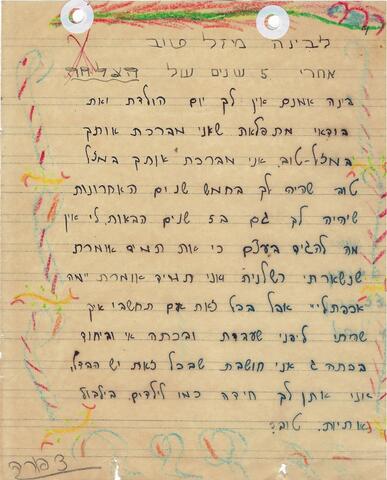 לבינה מיזל טוב
אחרי 5 שנים של הצלחה
בינה אמנם אין לך יום הולדת ואת
בודאי מתפלאת שאני מברכת אותך
במזל-טוב. אני מברכת אותך במזל
טוב שהיה לך בחמש שנים האחרונות
שיהיה לך גם ב5 שנים הבאות. לי אין
מה להגיד בעצם כי את תמיד אומרת
שנשארתי רשלנית ואני תמיד אומרת "מה
אכפת לי" אבל בכל זאת אם תחשבי איך
שהיתי לפני שעברת ובכתה א' וביחוד
בכתה ג אני חושבת שבכל זאת יש הבדל,
אני אתן לך חידה כמו לילדים. בילבול
אותיות. טוב?